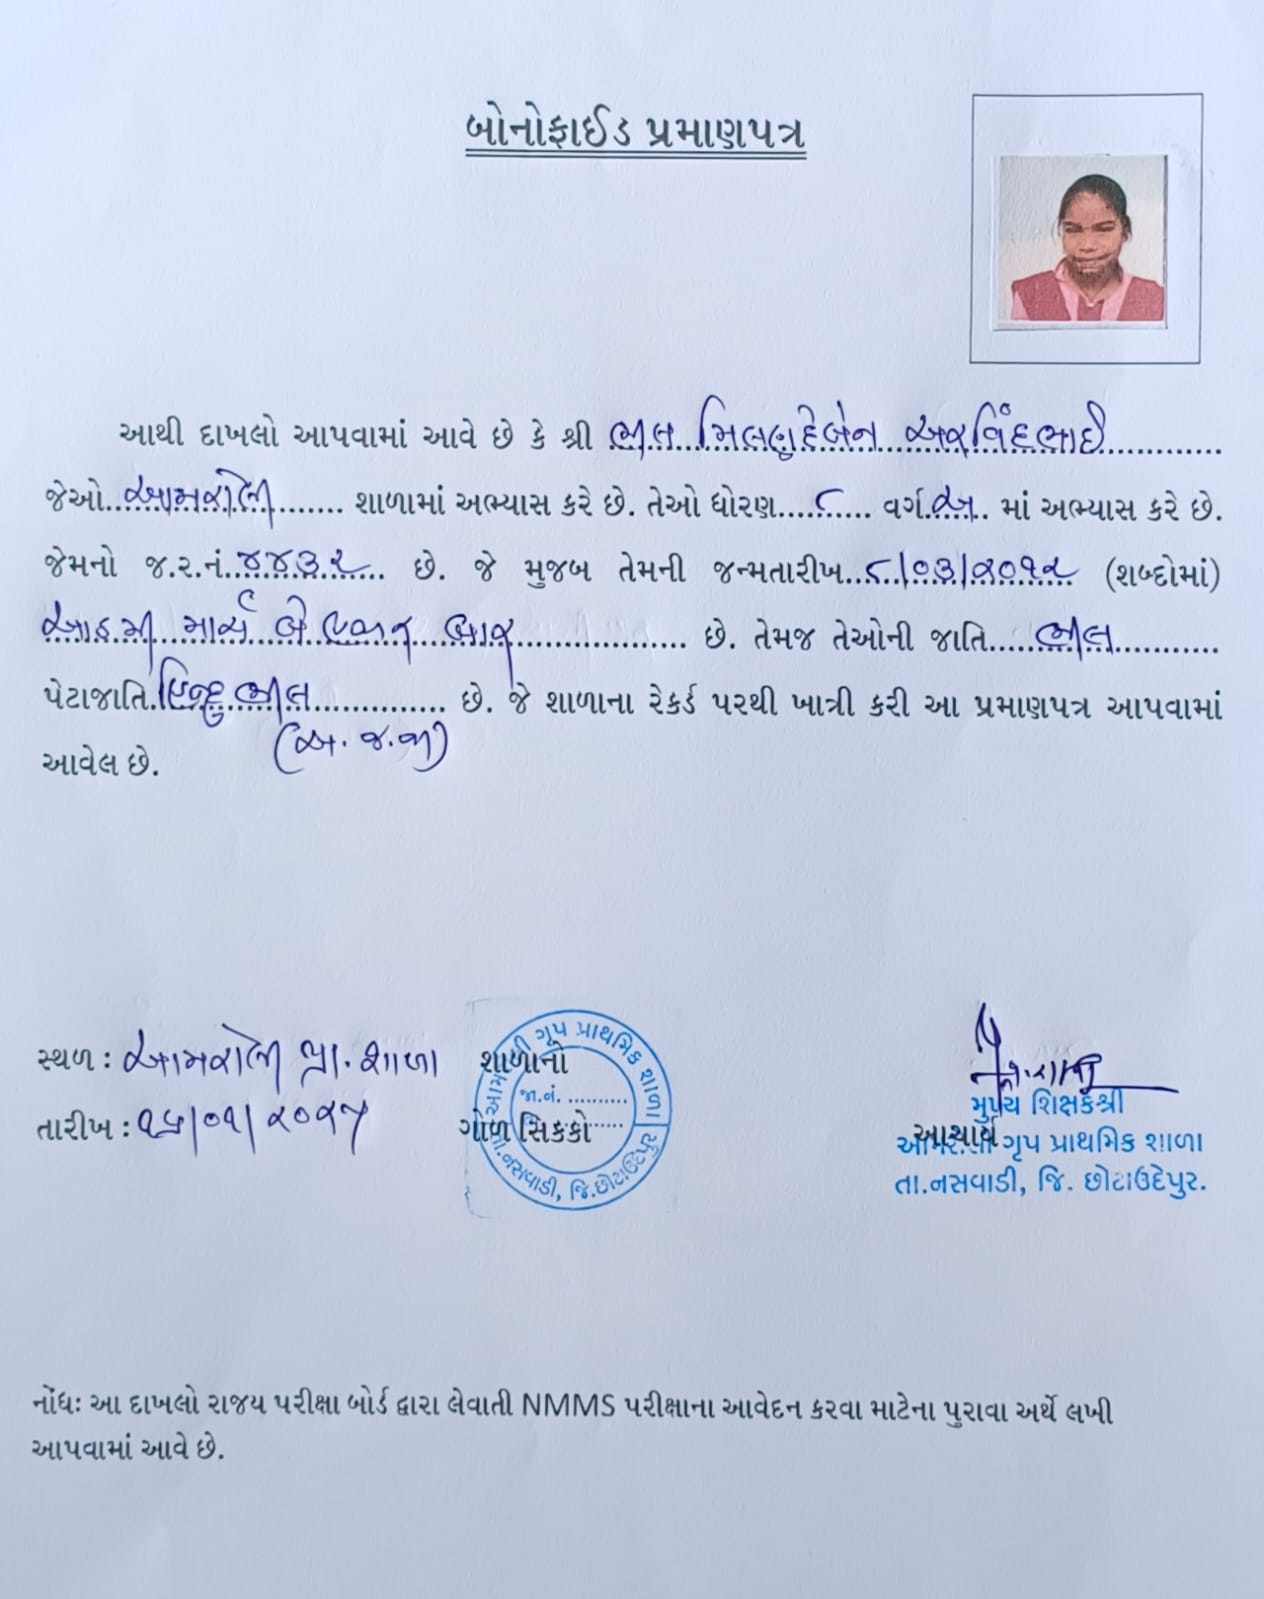 બોનોફાઈડ પ્રમાણપત્ર
આથી દાખલો આપવામાં આવે છે કે શ્રી ભીલ મિલણદેબેન અરવિંદભાઈ
જેઓ આમરોલી શાળામાં અભ્યાસ કરે છે. તેઓ ધોરણ ૮ વર્ગ અ માં અભ્યાસ કરે છે.
જેમનો જ.ર.નં. ૪૪૩૨ છે. જે મુજબ તેમની જન્મતારીખ ૮/૦૩/૨૦૧૨ (શબ્દોમાં)
આઠમી માર્ચ બે હજાર બાર છે. તેમજ તેઓની જાતિ ભીલ
પેટાજાતિ હિન્દુ ભીલ છે. જે શાળાના રેકર્ડ પરથી ખાત્રી કરી આ પ્રમાણપત્ર આપવામાં
(અ.જ.જા)
આવેલ છે.
સ્થળ : આમરોલી પ્રા. શાળા
તારીખ : ૧૬/૦૧/૨૦૨૫
શાળાનો
ગોળ સિક્કો
ગૃપ પ્રાથમિક શાળા
જા.નં. ..........
તા.નસવાડી, જિ.છોટાઉદેપુર
મુખ્ય શિક્ષકશ્રી
આચાર્ય
ગૃપ પ્રાથમિક શાળા
તા.નસવાડી, જિ. છોટાઉદેપુર.
નોંધઃ આ દાખલો રાજય પરીક્ષા બોર્ડ દ્વારા લેવાતી NMMS પરીક્ષાના આવેદન કરવા માટેના પુરાવા અર્થે લખી
આપવામાં આવે છે.